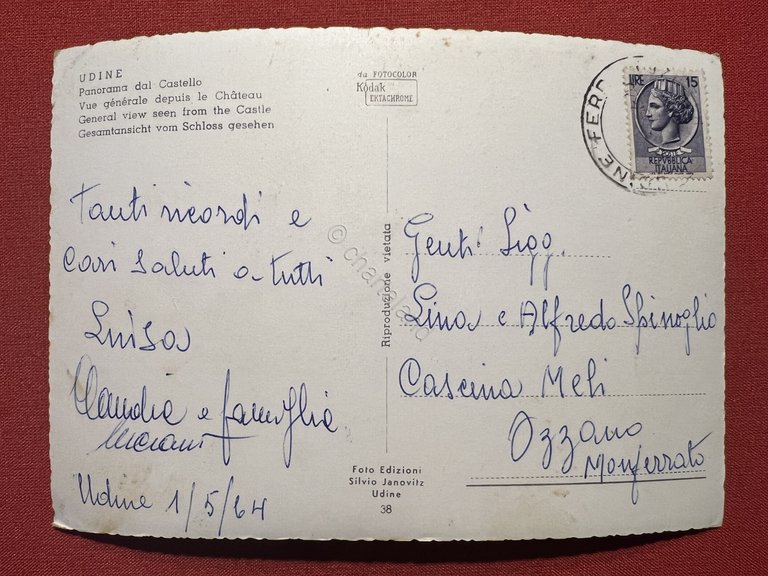 UDINE
Panorama dal Castello
Vue générale depuis le Château
General view seen from the Castle
Gesamtansicht vom Schloss gesehen
da FOTOCOLOR
Kodak
EKTACHROME
LIRE 15
REPVBBLICA
ITALIANA
UDINE FERR
Tanti ricordi e
Cari Saluti a tutti
Luisa
Claudia e famiglia
Udine 1/5/64
Riproduzione vietata
Foto Edizioni
Silvio Janovitz
Udine
38
Gent. Sigg.
Lina e Alfredo Spinoglio
Cascina Meli
Ozzano
Monferrato